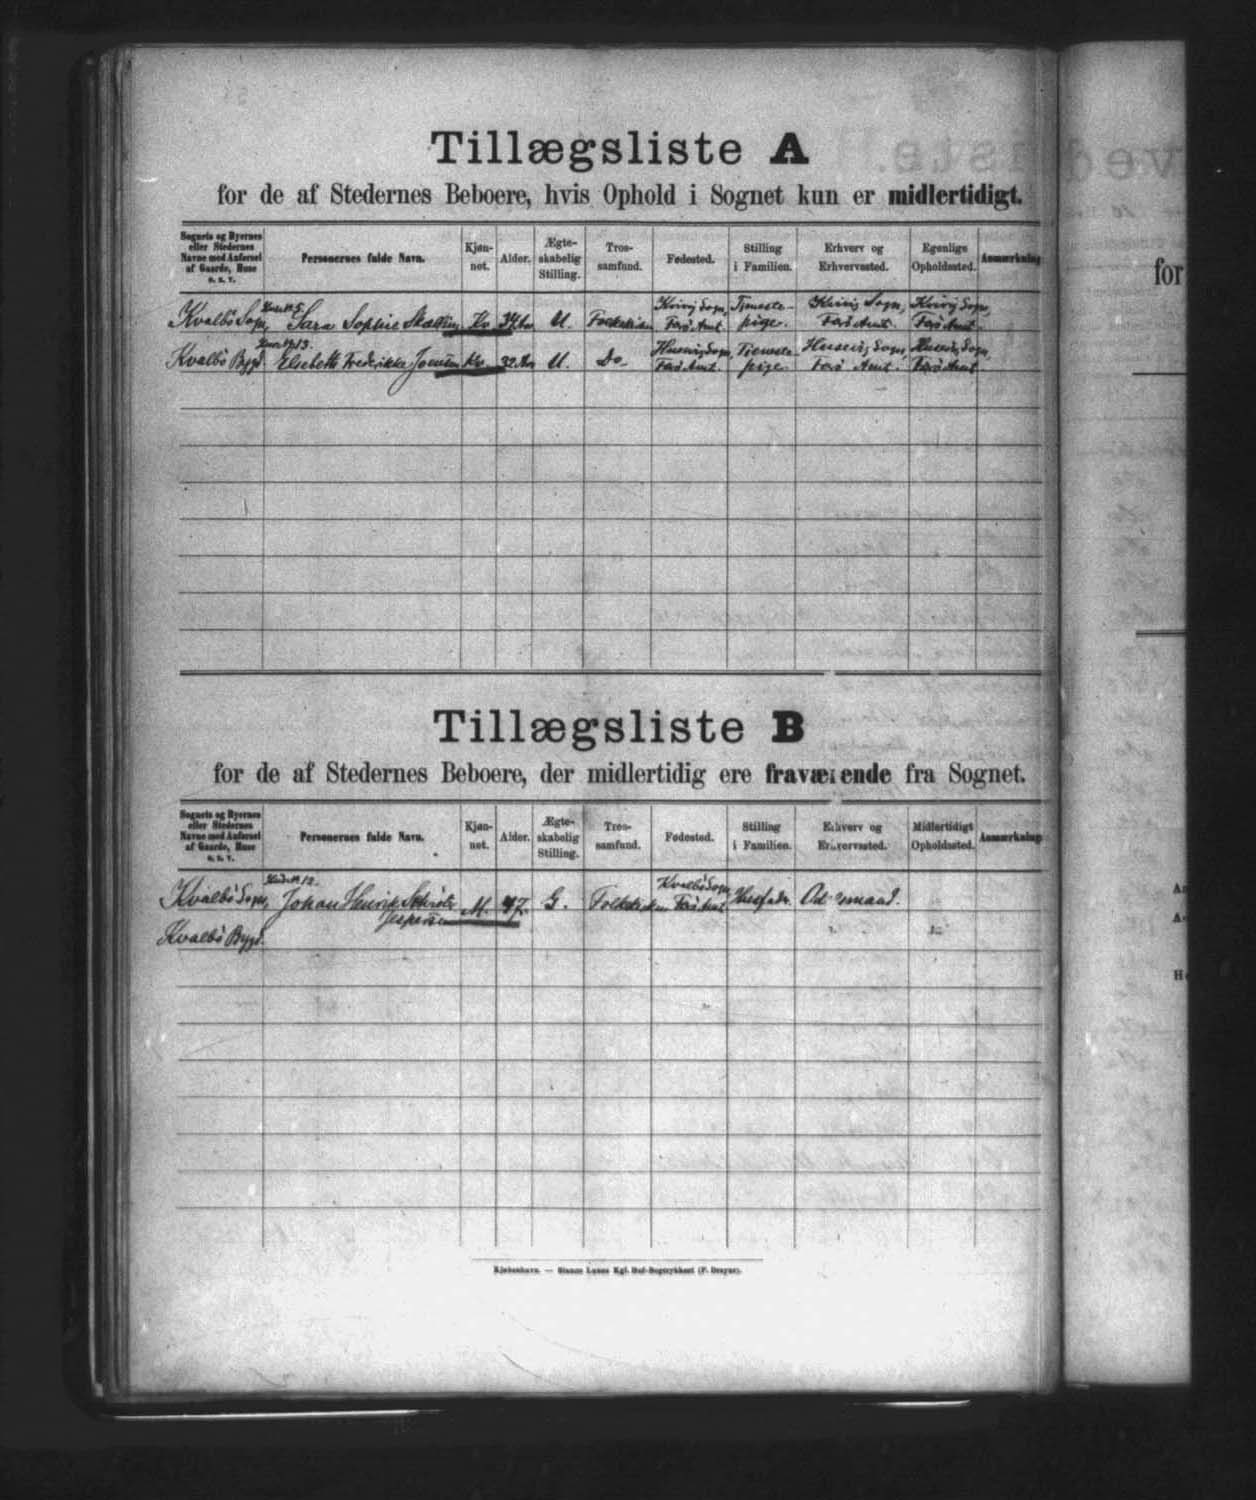 Tillægsliste A
for de af Stedernes Beboere, hvis Ophold i Sognet kun er midlertidigt.
Sognets og Byernes eller Stedernes Navne med Anførsel af Gaarde, Huse o. s. v.
Personernes fulde Navn.
Kjøn-
net.
Alder.
Ægte-
skabelig
Stilling.
Tros-
samfund.
Fødested.
Stilling
i Familien.
Erhverv og
Erhvervssted.
Egenlige
Opholdssted.
Anmærkning
Kvalbö Sogn, Sara Sophie Kv. 34 U. Folkekirken Sogn, Færö Amt. Tjeneste- pige. Sogn, Færö Amt. Sogn, Færö Amt.
Kvalbö Bygd Elsebeth Frederikke Joensen Kv. 32 U. Do Husevig Sogn, Færö Amt. Tjeneste- pige. Husevig Sogn, Færö Amt. Husevig Sogn, Færö Amt
Tillægsliste B
for de af Stedernes Beboere, der midlertidig ere fraværende fra Sognet.
Sognets og Byernes eller Stedernes Navne med Anførsel af Gaarde, Huse o. s. v.
Personernes fulde Navn.
Kjøn-
net.
Alder.
Ægte-
skabelig
Stilling.
Tros-
samfund.
Fødested.
Stilling
i Familien.
Erhverv og
Erhvervssted.
Midlertidigt
Opholdssted.
Anmærkning
Kvalbö Sogn, Johan Henrik Schröder Jespersen M. 47. G. Folkekirken Kvalbö Sogn, Færö Amt Husfader.
Kvalbö Bygd.
Kjøbenhavn. — Bianco Lunos Kgl. Hof-Bogtrykkeri (F. Dreyer).
for